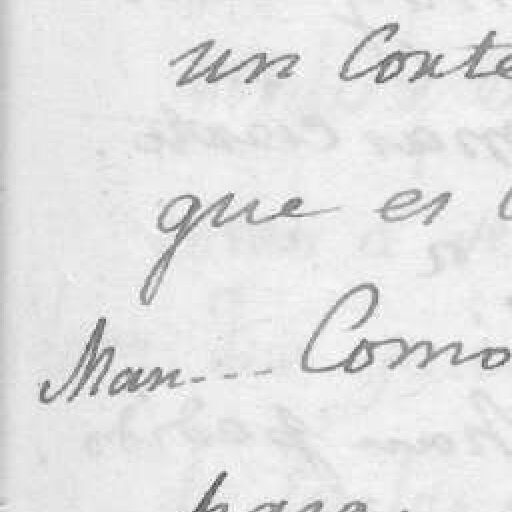 un Conte
que es
Man... Como
para